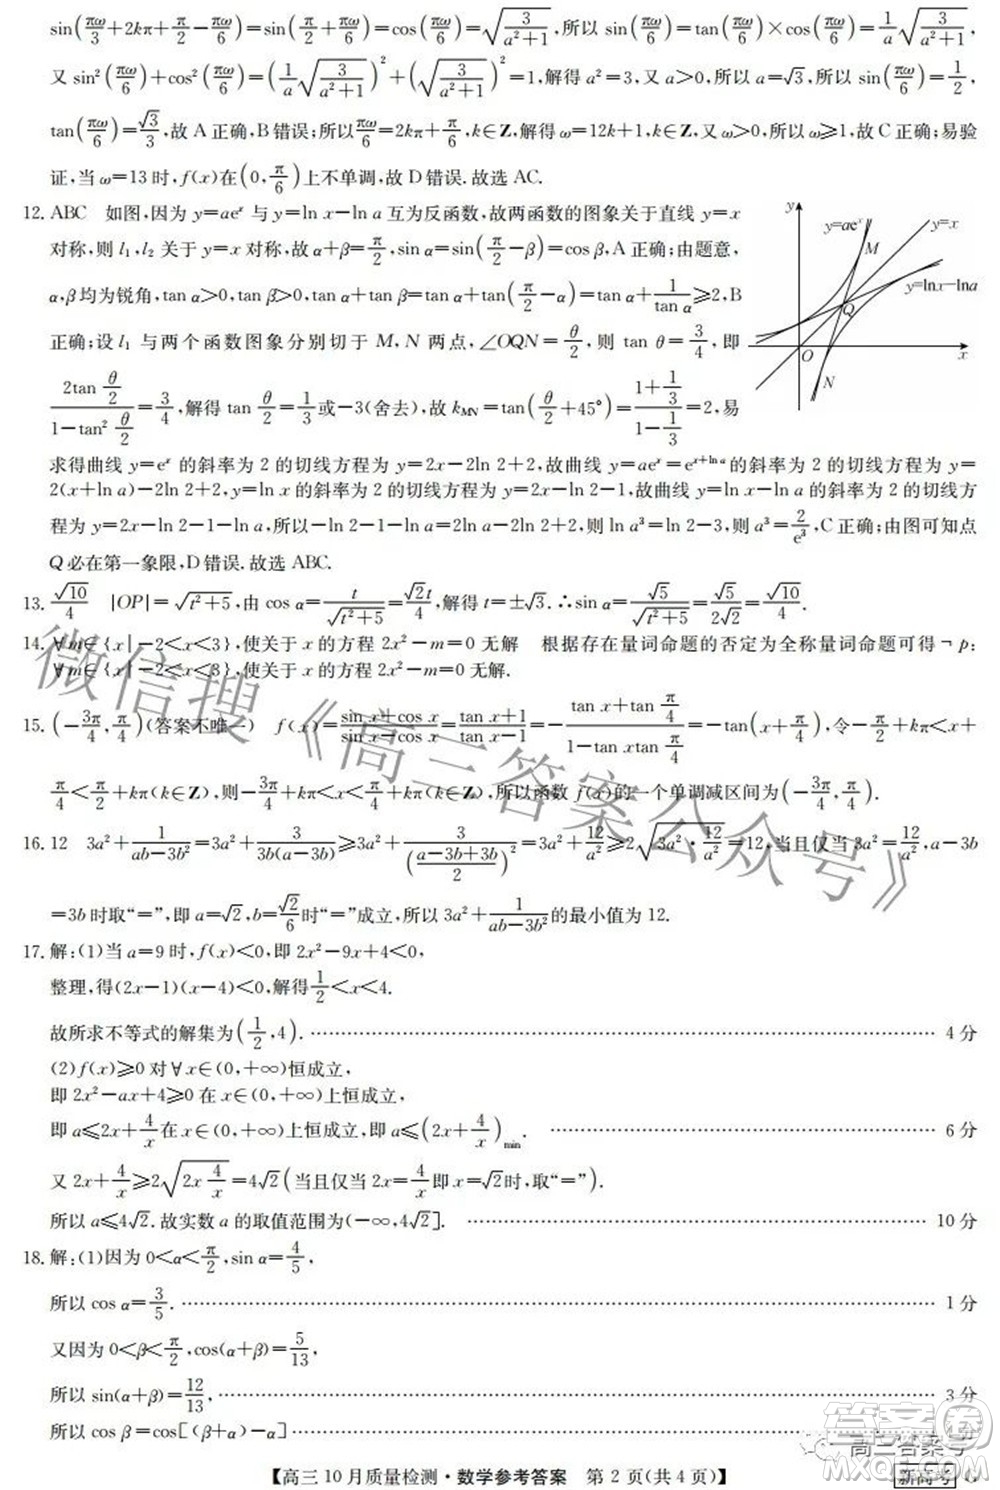 sin(πω/3+2kπ+π/2−πω/6)=sin(π/2+πω/6)=cos(πω/6)=√(3/(a²+1)),所以 sin(πω/6)=tan(πω/6)×cos(πω/6)=1/a√(3/(a²+1)),
又 sin²(πω/6)+cos²(πω/6)=(1/a√(3/(a²+1)))²+(√(3/(a²+1)))²=1,解得 a²=3,又 a>0,所以 a=√3,所以 sin(πω/6)=1/2,
tan(πω/6)=√3/3,故 A 正确,B 错误;所以πω/6=2kπ+π/6,k∈Z,解得 ω=12k+1,k∈Z,又 ω>0,所以 ω≥1,故 C 正确;易验
证,当 ω=13 时,f(x)在(0,π/6)上不单调,故 D 错误.故选 AC.
12. ABC 如图,因为 y=aeˣ 与 y=ln x−ln a 互为反函数,故两函数的图象关于直线 y=x
对称,则 l₁,l₂ 关于 y=x 对称,故 α+β=π/2,sin α=sin(π/2−β)=cos β,A 正确;由题意,
α,β均为锐角,tan α>0,tan β>0,tan α+tan β=tan α+tan(π/2−α)=tan α+1/tan α≥2,B
正确;设 l₁ 与两个函数图象分别切于 M,N 两点,∠OQN=θ/2,则 tan θ=3/4,即
2tan θ/2/(1−tan² θ/2)=3/4,解得 tan θ/2=1/3或−3(舍去),故 kMN=tan(θ/2+45°)=(1+1/3)/(1−1/3)=2,易
求得曲线 y=eˣ 的斜率为 2 的切线方程为 y=2x−2ln 2+2,故曲线 y=aeˣ=eˣ⁺ˡⁿ ᵃ的斜率为 2 的切线方程为 y=
2(x+ln a)−2ln 2+2,y=ln x 的斜率为 2 的切线方程为 y=2x−ln 2−1,故曲线 y=ln x−ln a 的斜率为 2 的切线方
程为 y=2x−ln 2−1−ln a,所以−ln 2−1−ln a=2ln a−2ln 2+2,则 ln a³=ln 2−3,则 a³=2/e³,C 正确;由图可知点
Q 必在第一象限,D 错误.故选 ABC.
y
y=aeˣ
M
y=x
y=lnx−lna
Q
O
x
N
13. √10/4 |OP|=√(t²+5),由 cos α=t/√(t²+5)=√2t/4,解得 t=±√3.∴sin α=√5/√(t²+5)=√5/2√2=√10/4.
14. ∀m∈{x|−2<x<3},使关于 x 的方程 2x²−m=0 无解 根据存在量词命题的否定为全称量词命题可得¬p:
∀m∈{x|−2<x<3},使关于 x 的方程 2x²−m=0 无解.
15. (−3π/4,π/4)(答案不唯一) f(x)=(sin x+cos x)/(sin x−cos x)=(tan x+1)/(tan x−1)=−(tan x+tan π/4)/(1−tan xtan π/4)=−tan(x+π/4),令−π/2+kπ<x+
π/4<π/2+kπ(k∈Z),则−3π/4+kπ<x<π/4+kπ(k∈Z),所以函数 f(x)的一个单调减区间为(−3π/4,π/4).
16. 12 3a²+1/(ab−3b²)=3a²+3/(3b(a−3b))≥3a²+3/((a−3b+3b)/2)²=3a²+12/a²≥2√(3a²·12/a²)=12,当且仅当 3a²=12/a²,a−3b
=3b 时取“=”,即 a=√2,b=√2/6时“=”成立,所以 3a²+1/(ab−3b²)的最小值为 12.
17. 解:(1)当 a=9 时,f(x)<0,即 2x²−9x+4<0,
整理,得(2x−1)(x−4)<0,解得1/2<x<4.
故所求不等式的解集为(1/2,4). …… 4 分
(2)f(x)≥0 对∀x∈(0,+∞)恒成立,
即 2x²−ax+4≥0 在 x∈(0,+∞)上恒成立,
即 a≤2x+4/x在 x∈(0,+∞)上恒成立,即 a≤(2x+4/x)min. …… 6 分
又 2x+4/x≥2√(2x·4/x)=4√2(当且仅当 2x=4/x即 x=√2时,取“=”).
所以 a≤4√2.故实数 a 的取值范围为(−∞,4√2]. …… 10 分
18. 解:(1)因为 0<α<π/2,sin α=4/5,
所以 cos α=3/5. …… 1 分
又因为 0<β<π/2,cos(α+β)=5/13,
所以 sin(α+β)=12/13 …… 3 分
所以 cos β=cos[(α+β)−α] ……
【高三 10 月质量检测·数学参考答案 第 2 页(共 4 页)】
新高考
微信搜《高三答案公众号》
答案卷
高三答案号